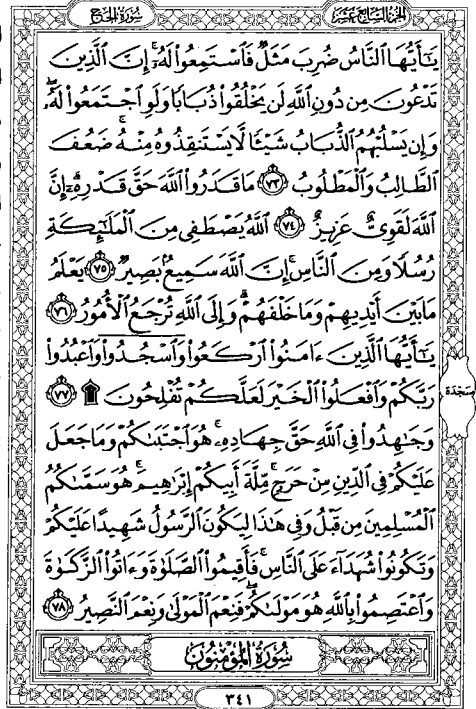 الجزء السابع عشر
سورة الحج
يَٰٓأَيُّهَا ٱلنَّاسُ ضُرِبَ مَثَلٞ فَٱسۡتَمِعُواْ لَهُۥٓۚ إِنَّ ٱلَّذِينَ
تَدۡعُونَ مِن دُونِ ٱللَّهِ لَن يَخۡلُقُواْ ذُبَابٗا وَلَوِ ٱجۡتَمَعُواْ لَهُۥۖ
وَإِن يَسۡلُبۡهُمُ ٱلذُّبَابُ شَيۡـٔٗا لَّا يَسۡتَنقِذُوهُ مِنۡهُۚ ضَعُفَ
ٱلطَّالِبُ وَٱلۡمَطۡلُوبُ ٧٣ مَا قَدَرُواْ ٱللَّهَ حَقَّ قَدۡرِهِۦٓۚ إِنَّ
ٱللَّهَ لَقَوِيٌّ عَزِيزٌ ٧٤ ٱللَّهُ يَصۡطَفِي مِنَ ٱلۡمَلَٰٓئِكَةِ
رُسُلٗا وَمِنَ ٱلنَّاسِۚ إِنَّ ٱللَّهَ سَمِيعُۢ بَصِيرٞ ٧٥ يَعۡلَمُ
مَا بَيۡنَ أَيۡدِيهِمۡ وَمَا خَلۡفَهُمۡۚ وَإِلَى ٱللَّهِ تُرۡجَعُ ٱلۡأُمُورُ ٧٦
يَٰٓأَيُّهَا ٱلَّذِينَ ءَامَنُواْ ٱرۡكَعُواْ وَٱسۡجُدُواْ وَٱعۡبُدُواْ
رَبَّكُمۡ وَٱفۡعَلُواْ ٱلۡخَيۡرَ لَعَلَّكُمۡ تُفۡلِحُونَ ۩ ٧٧
سَجْدَة
وَجَٰهِدُواْ فِي ٱللَّهِ حَقَّ جِهَادِهِۦۚ هُوَ ٱجۡتَبَىٰكُمۡ وَمَا جَعَلَ
عَلَيۡكُمۡ فِي ٱلدِّينِ مِنۡ حَرَجٖۚ مِّلَّةَ أَبِيكُمۡ إِبۡرَٰهِيمَۚ هُوَ سَمَّىٰكُمُ
ٱلۡمُسۡلِمِينَ مِن قَبۡلُ وَفِي هَٰذَا لِيَكُونَ ٱلرَّسُولُ شَهِيدًا عَلَيۡكُمۡ
وَتَكُونُواْ شُهَدَآءَ عَلَى ٱلنَّاسِۚ فَأَقِيمُواْ ٱلصَّلَوٰةَ وَءَاتُواْ ٱلزَّكَوٰةَ
وَٱعۡتَصِمُواْ بِٱللَّهِ هُوَ مَوۡلَىٰكُمۡۖ فَنِعۡمَ ٱلۡمَوۡلَىٰ وَنِعۡمَ ٱلنَّصِيرُ ٧٨
سُورَةُ المُؤْمِنُونَ
٣٤١